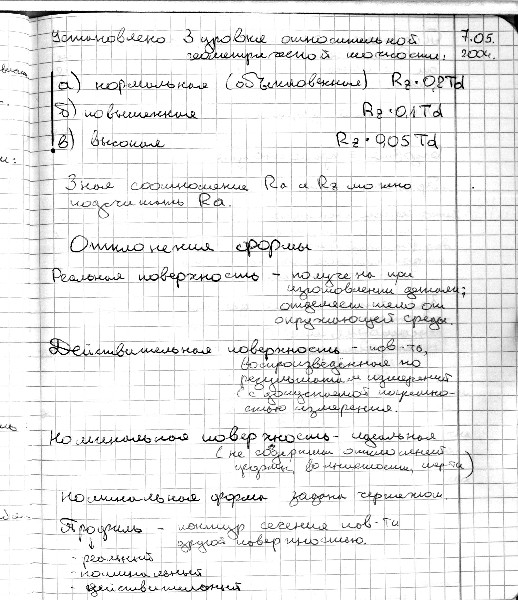 Установлено 3 уровня относительной 7.05.
геометрической точности: 2004.
а) нормальная (обыкновенная) Rz · 0,2Td
б) повышенная Rz · 0,1Td
в) высокая Rz · 0,05Td
Зная соотношение Ra и Rz можно
подсчитать Ra.
Отклонения формы
Реальная поверхность – получена при
изготовлении детали;
отделяет тело от
окружающей среды.
Действительная поверхность – пов-ть,
воспроизведенная по
результатам измерений
(с допускаемой погрешно-
стью измерения.
Номинальная поверхность – идеальная
(не содержит отклонений
формы, волнистости, шер-ти)
Номинальная форма задана чертежом
Профиль – контур сечения пов-ти
другой поверхностью.
- реальный
- номинальный
- действительный